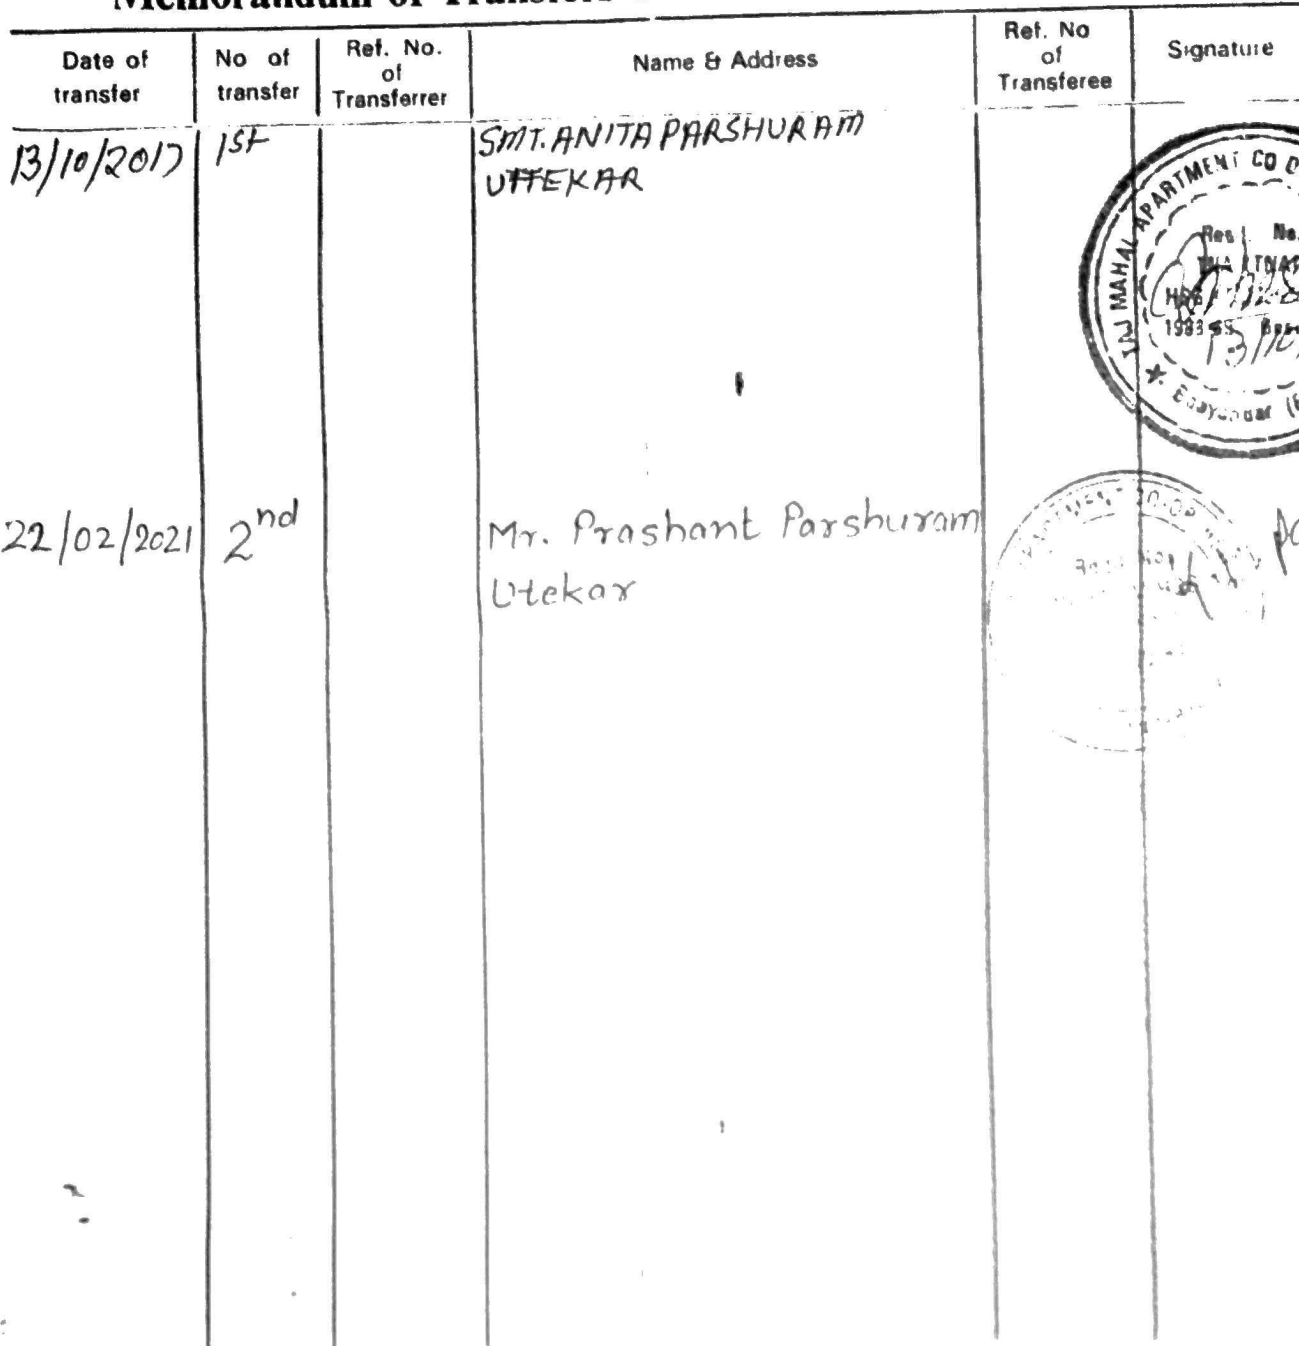 Memorandum of Transfers
Date of transfer
No of transfer
Ref. No. of Transferrer
Name & Address
Ref. No of Transferee
Signature
13/10/2017 1st SMT. ANITA PARSHURAM
UTTEKAR
TAJ MAHAL APARTMENT CO O
No.
13/10/
22/02/2021 2nd Mr. Prashant Parshuram
Utekar